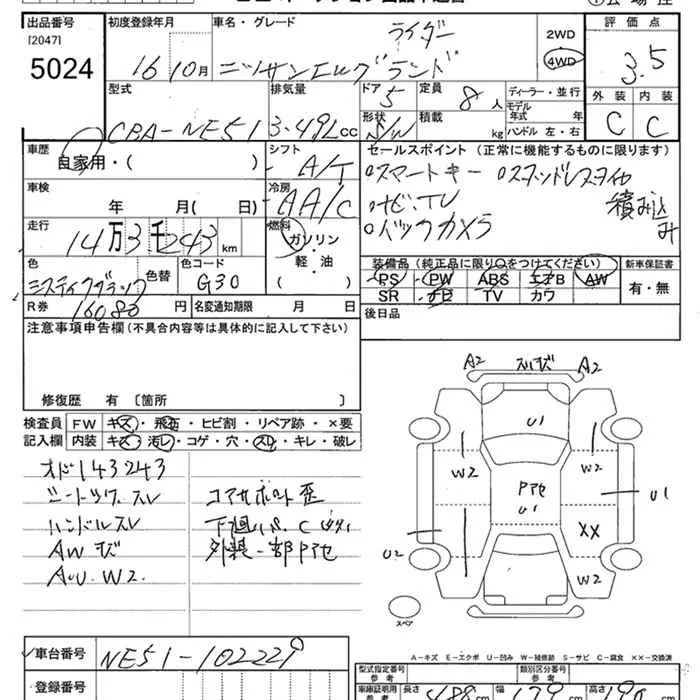 出品番号 初度登録年月 車名・グレード 評価点
[2047]
5024
16 10月
ライダー
ニッサンエルグランド
2WD
4WD
3.5
型式 排気量 ドア 定員 ディーラー・並行 外装 内装
CBA-NE51 3.49L cc 5 8人
モデル年式 年
形状 積載 ハンドル 左・右
S/W kg
C C
車歴 シフト セールスポイント(正常に機能するものに限ります)
自家用・( )
A/T
○スマートキー ○スタッドレスタイヤ
積み込み
○ナビ、TV
○バックカメラ
車検 冷房
年 月( 日)
AA/C
走行 燃料
14万3千243km
ガソリン・軽・油
( )
色 色替 色コード
ミスティックブラック G30
装備品(純正品に限り○をつけてください) 新車保証書
PS PW ABS エアB AW
SR ナビ TV カワ
有・無
R券 16080円 名変通知期限 月 日
後日品
注意事項申告欄(不具合内容等は具体的に記入して下さい)
修復歴 有 〔箇所 〕
検査員記入欄
FW キズ・飛石・ヒビ割・リペア跡・×要
内装 キズ・汚レ・コゲ・穴・スレ・キレ・破レ
オド143243
シートツケ、スレ
ハンドルスレ
AWキズ
AUU W2
コアサポート歪
下廻りS、C
外装一部Pアセ
A2 スリキズ A2
U1
W2 W2
Pアセ
U1
U1
XX
U2
W2
スペア
A-キズ E-エクボ U-凹み W-補修跡 S-サビ C-腐食 XX-交換済
車台番号 NE51-102229
登録番号
型式指定番号 参考 類別区分番号 参考
車庫証明用 参考 長さ 488 cm 幅 179 cm 高さ 190 cm